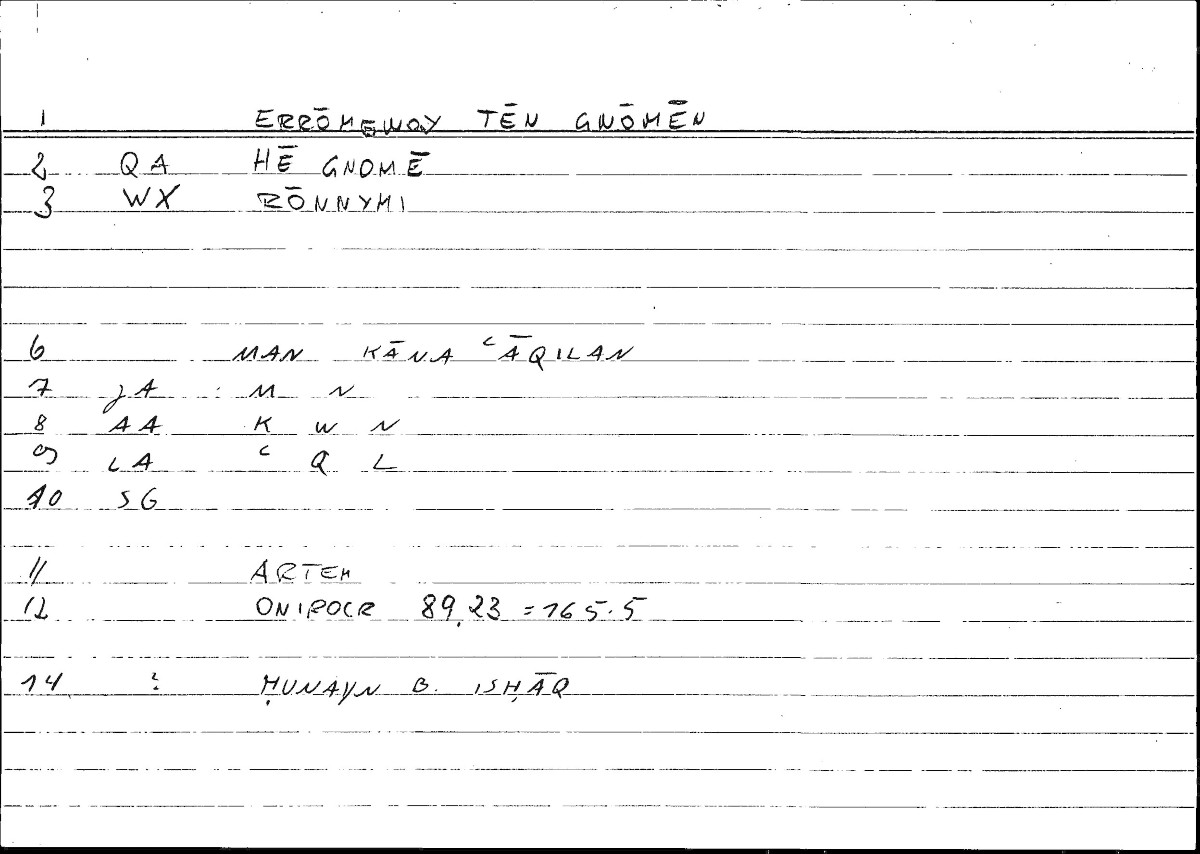 1 ERRŌMENOY TĒN GNŌMĒN
2 QA HĒ GNOMĒ
3 WX RŌNNYMI
6 MAN KĀNA ʿĀQILAN
7 JA : M N
8 AA K W N
9 LA ʿ Q L
10 SG
11 ARTEM
12 ONIROCR 89,23 = 165.5
14 : ḤUNAYN B. ISḤĀQ